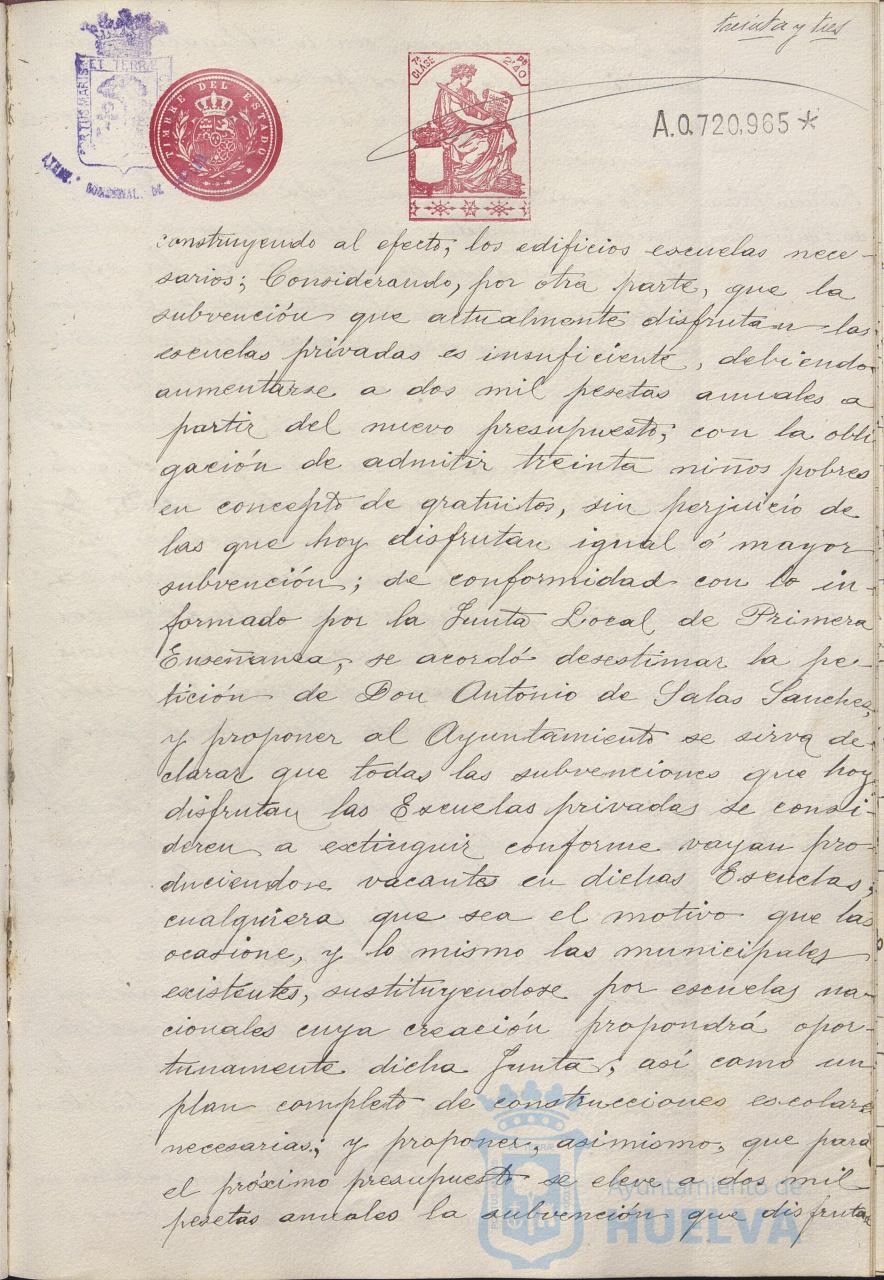 treinta y tres
ET TERRÆ
PORTUS MARIS
TIMBRE DEL ESTADO
7ª CLASE
2'40
A.0.720,965 *
construyendo al efecto, los edificios escuelas nece-
sarios; Considerando, por otra parte, que la
subvención que actualmente disfrutan las
escuelas privadas es insuficiente, debiendo
aumentarse a dos mil pesetas anuales a
partir del nuevo presupuesto, con la obli
gación de admitir treinta niños pobres
en concepto de gratuitos, sin perjuicio de
las que hoy disfrutan igual ó mayor
subvención; de conformidad con lo in-
formado por la Junta Local de Primera
Enseñanza, se acordó desestimar la pe-
tición de Don Antonio de Salas Sanchez,
y proponer al Ayuntamiento se sirva de-
clarar que todas las subvenciones que hoy
disfrutan las Escuelas privadas se consi-
deren a extinguir conforme vayan pro-
duciendose vacantes en dichas Escuelas,
cualquiera que sea el motivo que las
ocasione, y lo mismo las municipales
existentes, sustituyendose por escuelas na-
cionales cuya creación propondrá opor-
tunamente dicha Junta; así como un
plan completo de construcciones escolares
necesarias; y proponer, asimismo, que para
el próximo presupuesto se eleve a dos mil
pesetas anuales la subvención que disfrutan
Ayuntamiento de
HUELVA